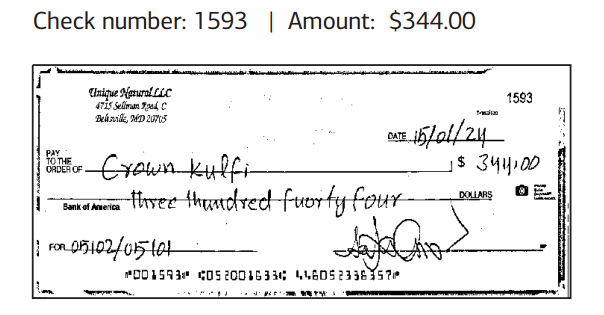 Check number: 1593 | Amount: $344.00
Unique Natural LLC
4715 Sellman Road, C
Beltsville, MD 20705
1593
DATE 15/01/24
PAY
TO THE
ORDER OF Crown kulfi $ 344.00
three hundred fuorty four DOLLARS
Bank of America
FOR 05102/015101